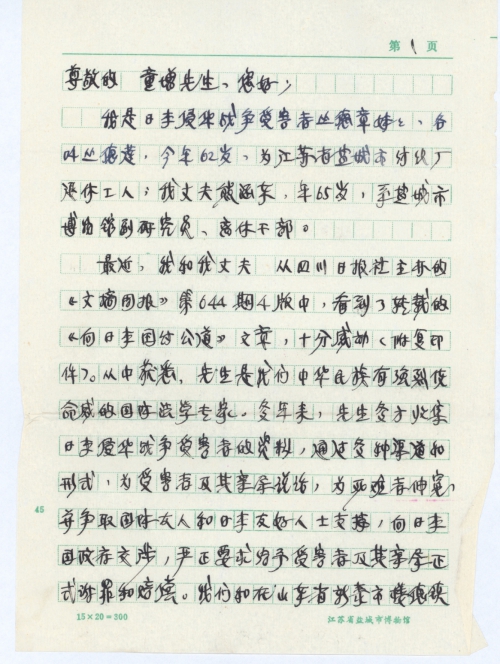 第 1 页
尊敬的 童增先生、您好；
我是日本侵华战争受害者丛德章妹妹、名
叫丛德莲，今年62岁，为江苏省盐城市纺织厂
退休工人；我丈夫 ，年65岁，系盐城市
博物馆副研究员、离休干部。
最近，我和我丈夫 从四川日报社主办的
《文摘周报》第644期4版中，看到了转载的
《向日本国讨公道》文章，十分感动（附复印
件）。从中获悉，先生是我们中华民族有强烈使
命感的国际法学专家。多年来，先生多方收集
日本侵华战争受害者的资料，通过多种渠道和
形式，为受害者及其亲属说话，为死难者伸冤，
并争取国际友人和日本友好人士支持，向日本
国政府交涉，严正要求为予受害者及其亲属正
式谢罪和赔偿。我们和在山东省 市
45
15×20=300
江苏省盐城市博物馆